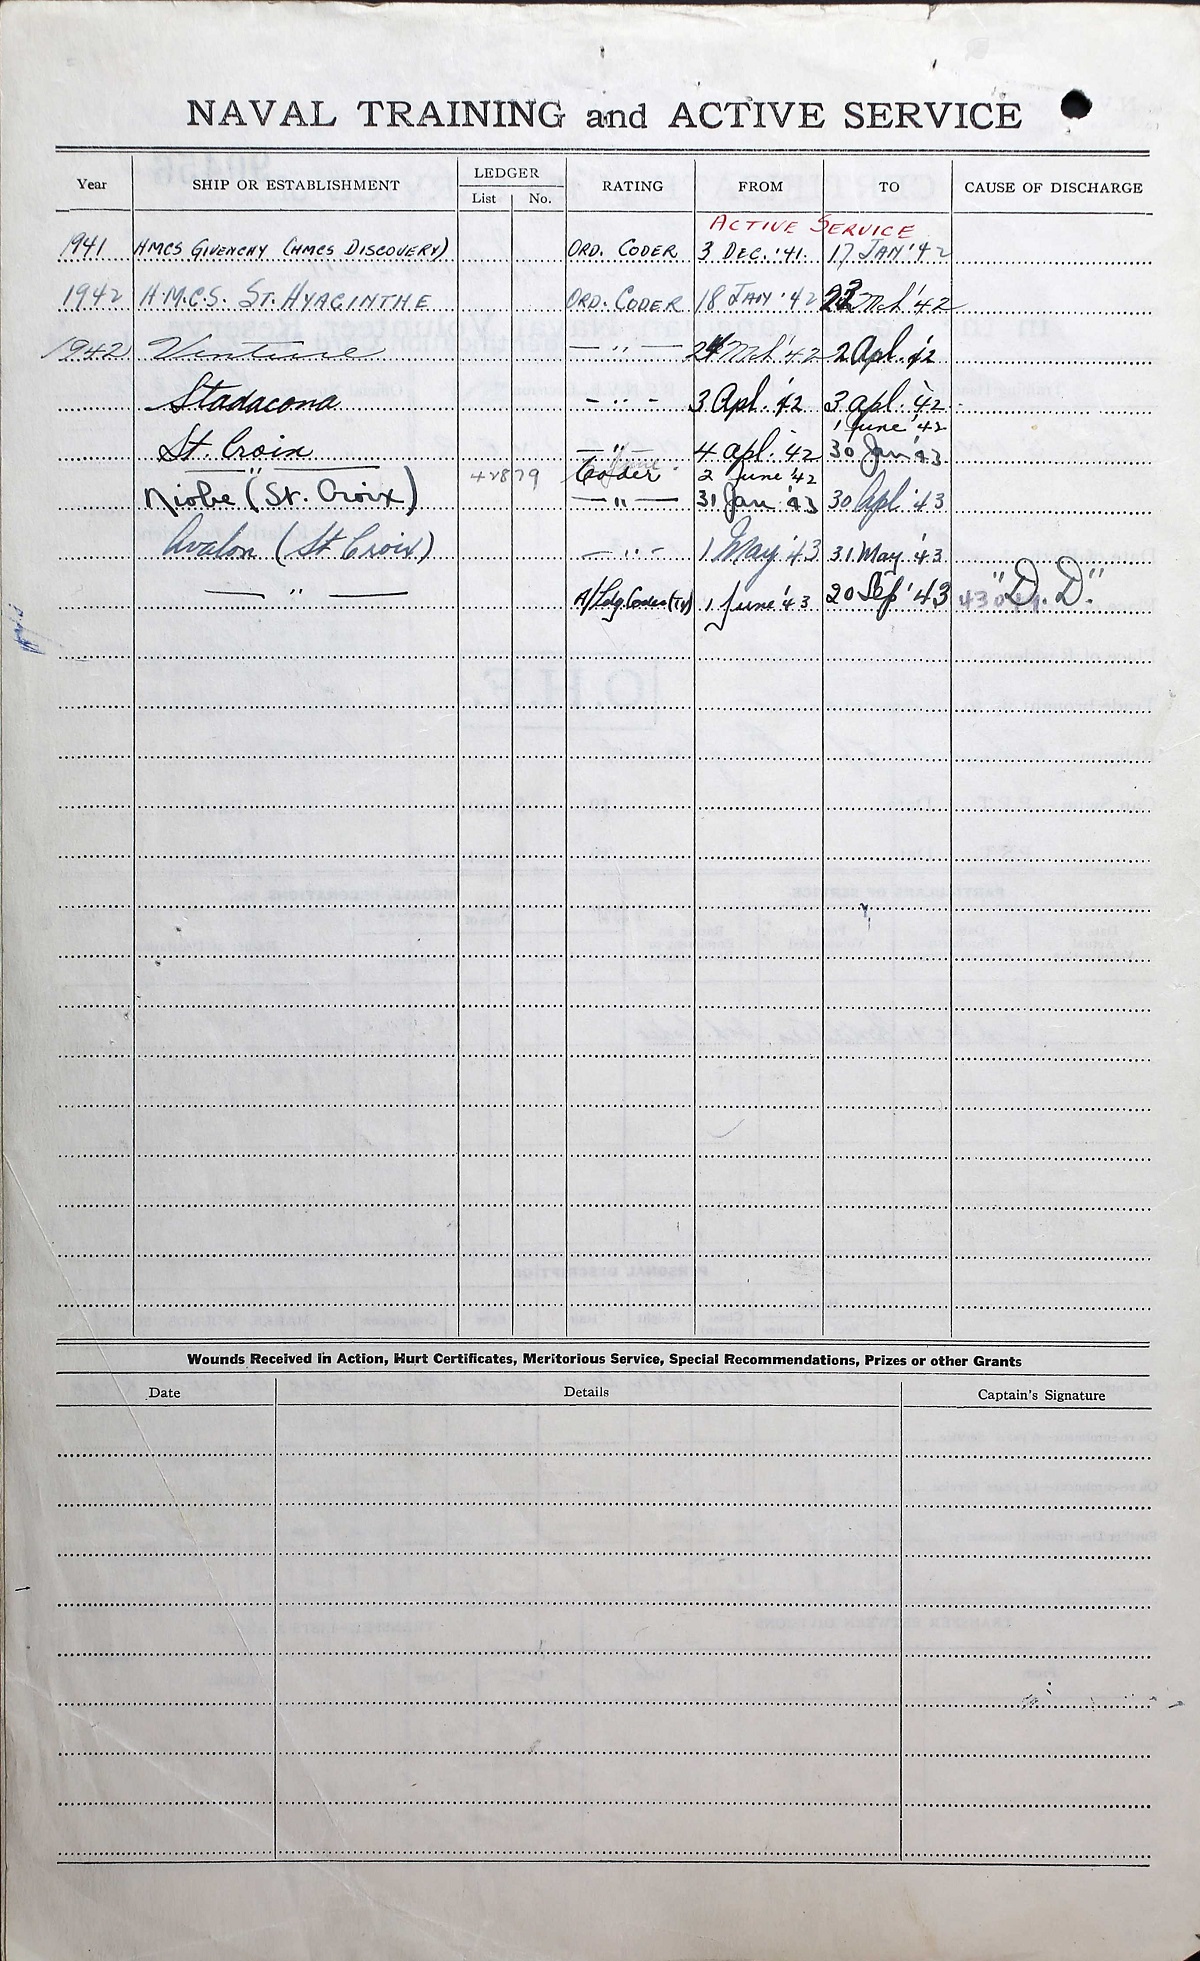 NAVAL TRAINING and ACTIVE SERVICE
Year SHIP OR ESTABLISHMENT LEDGER List No. RATING FROM TO CAUSE OF DISCHARGE
ACTIVE SERVICE
1941 HMCS GIVENCHY (HMCS DISCOVERY) ORD. CODER 3 DEC. '41. 17 JAN '42
1942 H.M.C.S. ST. HYACINTHE ORD. CODER 18 JAN '42 23 Mch '42
1942 Venture — " — 24 Mch '42 2 Apl. '42
Stadacona - " - 3 Apl. '42 3 apl. '42
1 June '42
St. Croix — " — 4 apl. '42 30 Jan '43
— " — 42879 Coder 2 June '42
Niobe (St. Croix) — " — 31 Jan '43 30 Apl '43
Avalon (St Croix) — " - 1 May '43 31 May '43
— " — A/Ldg. Coder (Ty) 1 June '43 20 Sep '43 "D.D."
Wounds Received in Action, Hurt Certificates, Meritorious Service, Special Recommendations, Prizes or other Grants
Date Details Captain's Signature